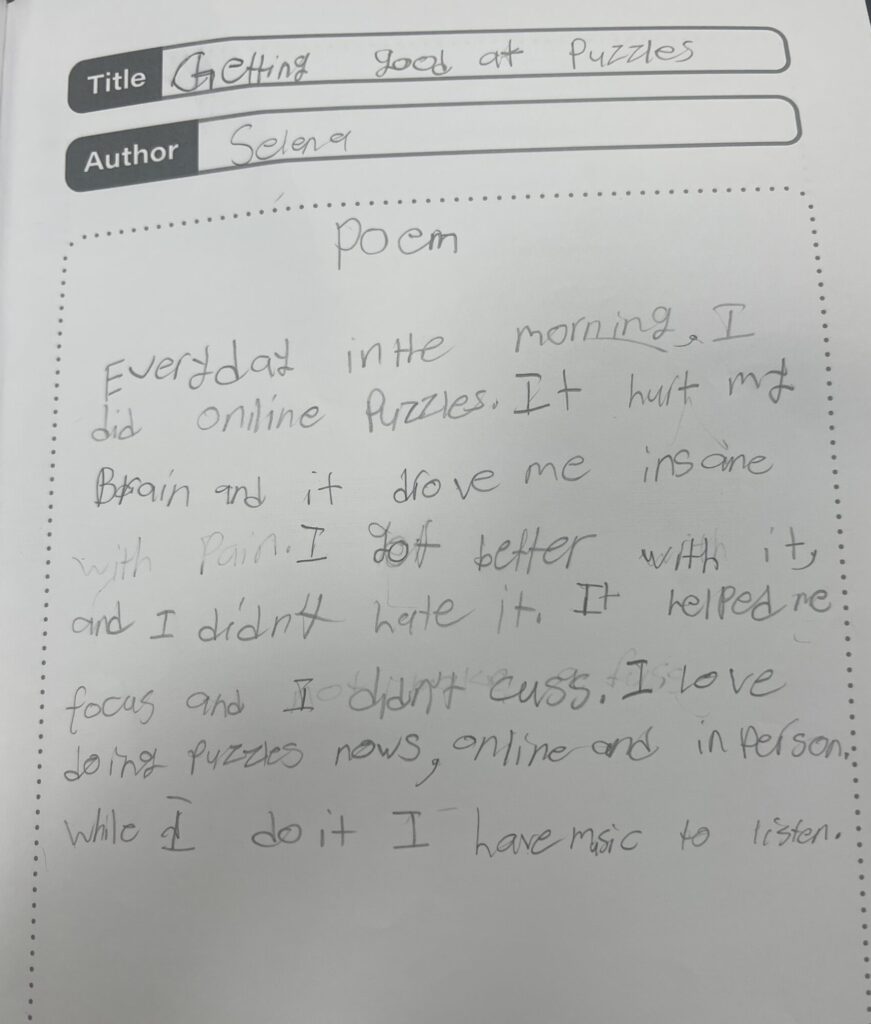 Title Getting good at Puzzles
Author Selena
Poem
Everyday in the morning, I
did online Puzzles. It hurt my
Brain and it drove me insane
with Pain. I got better with it,
and I didn't hate it. It helped me
focus and I didn't cuss. I love
doing puzzles nows, online and in person.
While I do it I have music to listen.